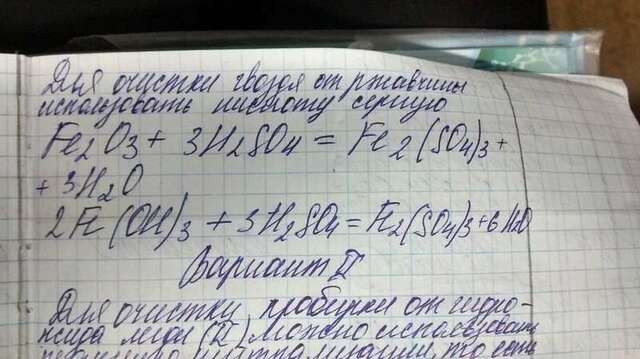 Для очистки гвоздя от ржавчины
использовать кислоту серную
Fe2O3 + 3H2SO4 = Fe2(SO4)3 +
+ 3H2O
2Fe(OH)3 + 3H2SO4 = Fe2(SO4)3 + 6H2O
Вариант II
Для очистки пробирки от гидро-
ксида меди (II) можно использовать
реакцию нейтрализации, то есть